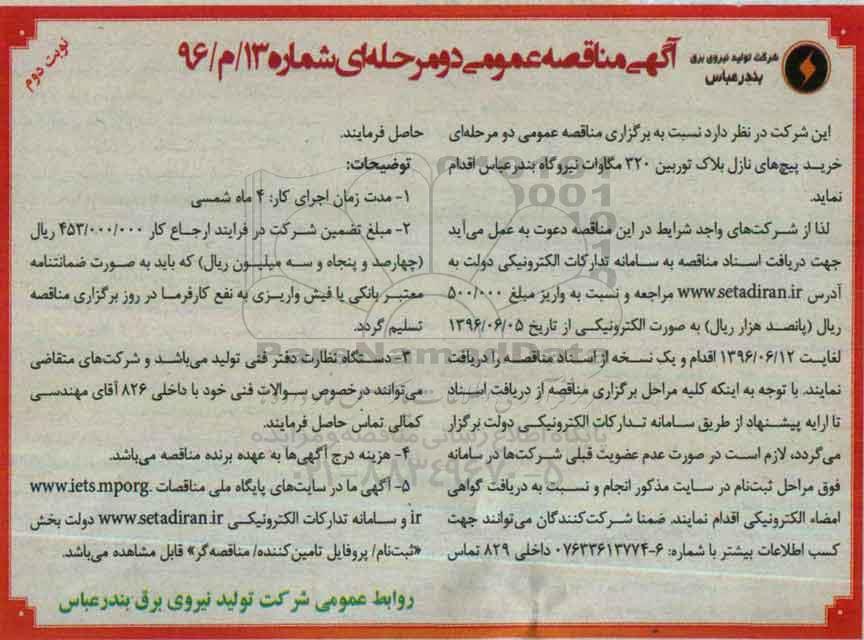 نوبت دوم
شرکت تولید نیروی برق
بندرعباس
آگهی مناقصه عمومی دو مرحله‌ای شماره ۱۳/م/۹۶
این شرکت در نظر دارد نسبت به برگزاری مناقصه عمومی دو مرحله‌ای
خرید پیچ‌های نازل بلاک توربین ۳۲۰ مگاوات نیروگاه بندرعباس اقدام
نماید.
لذا از شرکت‌های واجد شرایط در این مناقصه دعوت به عمل می‌آید
جهت دریافت اسناد مناقصه به سامانه تدارکات الکترونیکی دولت به
آدرس www.setadiran.ir مراجعه و نسبت به واریز مبلغ ۵۰۰/۰۰۰
ریال (پانصد هزار ریال) به صورت الکترونیکی از تاریخ ۱۳۹۶/۰۶/۰۵
لغایت ۱۳۹۶/۰۶/۱۲ اقدام و یک نسخه از اسناد مناقصه را دریافت
نمایند. با توجه به اینکه کلیه مراحل برگزاری مناقصه از دریافت اسناد
تا ارایه پیشنهاد از طریق سامانه تدارکات الکترونیکی دولت برگزار
می‌گردد، لازم است در صورت عدم عضویت قبلی شرکت‌ها در سامانه
فوق مراحل ثبت‌نام در سایت مذکور انجام و نسبت به دریافت گواهی
امضاء الکترونیکی اقدام نمایند. ضمنا شرکت‌کنندگان می‌توانند جهت
کسب اطلاعات بیشتر با شماره: ۶-۰۷۶۳۳۶۱۳۷۷۴ داخلی ۸۲۹ تماس
حاصل فرمایند.
توضیحات:
۱- مدت زمان اجرای کار: ۴ ماه شمسی
۲- مبلغ تضمین شرکت در فرایند ارجاع کار ۴۵۳/۰۰۰/۰۰۰ ریال
(چهارصد و پنجاه و سه میلیون ریال) که باید به صورت ضمانتنامه
معتبر بانکی یا فیش واریزی به نفع کارفرما در روز برگزاری مناقصه
تسلیم گردد.
۳- دستگاه نظارت دفتر فنی تولید می‌باشد و شرکت‌های متقاضی
می‌توانند درخصوص سوالات فنی خود با داخلی ۸۲۶ آقای مهندسی
کمالی تماس حاصل فرمایند.
۴- هزینه درج آگهی‌ها به عهده برنده مناقصه می‌باشد.
۵- آگهی ما در سایت‌های پایگاه ملی مناقصات www.iets.mporg.
ir و سامانه تدارکات الکترونیکی www.setadiran.ir دولت بخش
«ثبت‌نام/ پروفایل تامین‌کننده/ مناقصه‌گر» قابل مشاهده می‌باشد.
روابط عمومی شرکت تولید نیروی برق بندرعباس
ParsNamadData
پایگاه اطلاع رسانی مناقصه و مزایده
۰۲۱-۸۸۳۴۹۶۷۰-۵